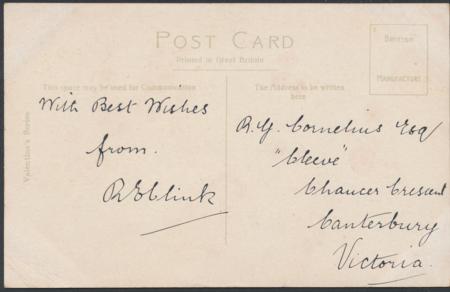 POST CARD
Printed in Great Britain
BRITISH
MANUFACTURE
This space may be used for Communication
The Address to be written
here
Valentine's Series
With Best Wishes
from.
R E Clink
R. G. Cornelius Esq
"Cleeve"
Chaucer Crescent
Canterbury
Victoria.